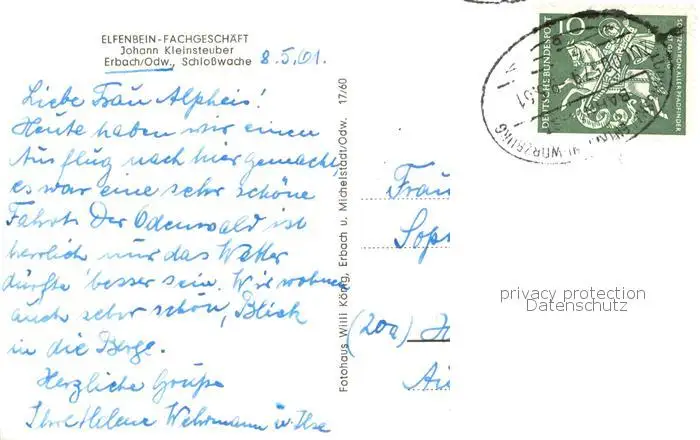 ELFENBEIN-FACHGESCHÄFT
Johann Kleinsteuber
Erbach/Odw., Schloßwache 8.5.61.
Liebe Frau Alpheis!
Heute haben wir einen
Ausflug nach hier gemacht,
es war eine sehr schöne
Fahrt. Der Odenwald ist
herrlich nur das Wetter
dürfte besser sein. Wir wohnen
auch sehr schön, Blick
in die Berge.
Herzliche Grüße
Ihre Helene Wehrmann u. Ilse
Fotohaus Willi König, Erbach u. Michelstadt/Odw. 17/60
10
DEUTSCHE BUNDESPOST
SCHUTZPATRON ALLER PFADFINDER
WÜRZBURG
Frau
Soph
(20a)
privacy protection
Datenschutz